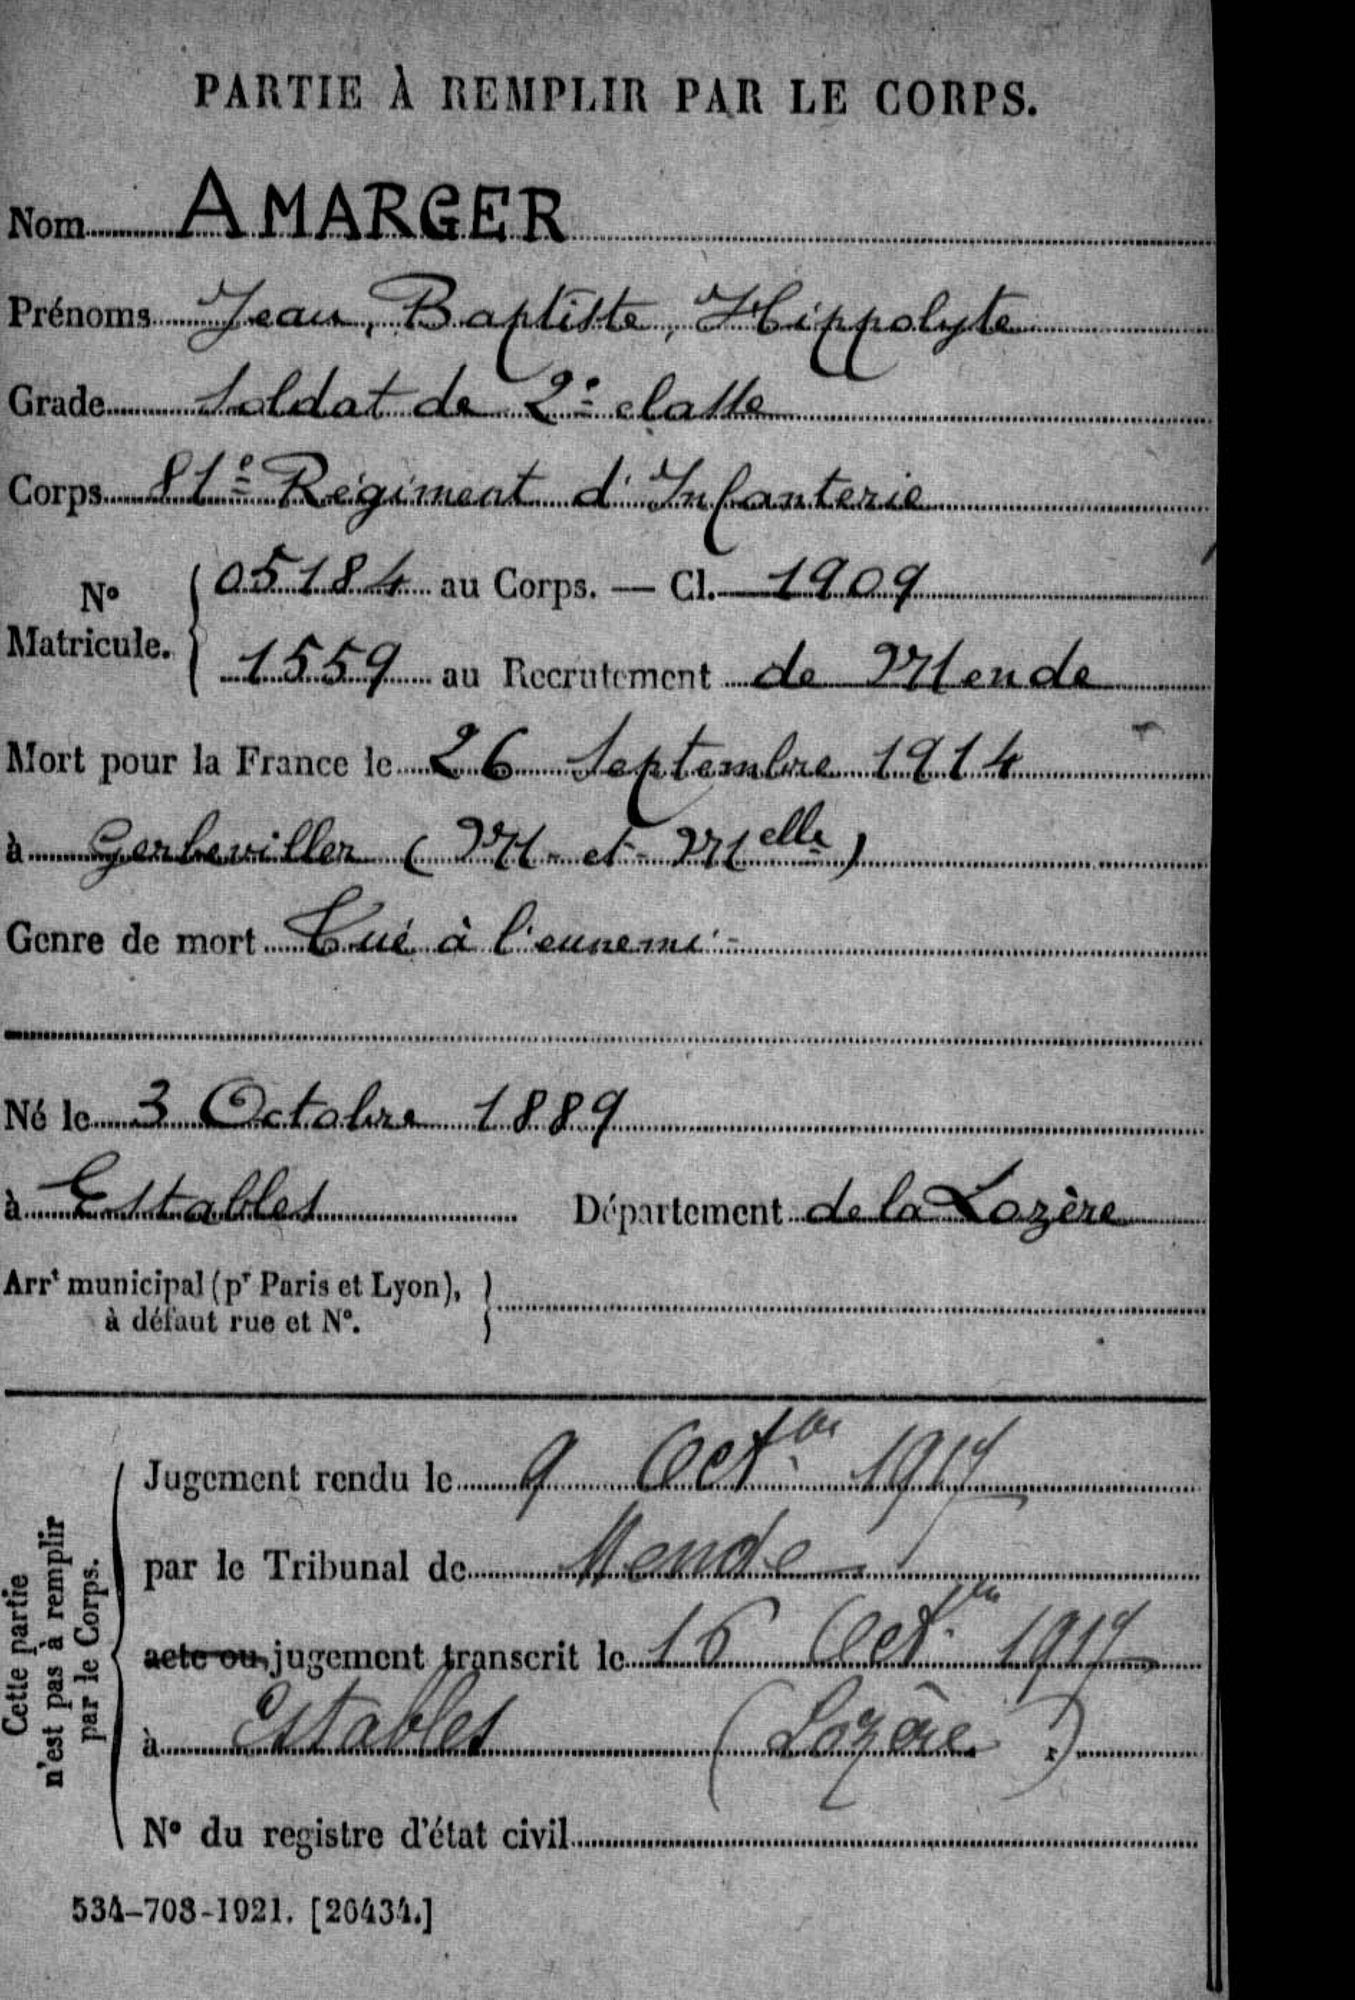 PARTIE À REMPLIR PAR LE CORPS.
Nom AMARGER
Prénoms Jean, Baptiste, Hippolyte
Grade Soldat de 2e classe
Corps 81e Régiment d'Infanterie
N° Matricule. 05184 au Corps. — Cl. 1909
1559 au Recrutement de Mende
Mort pour la France le 26 Septembre 1914
à Gerbeviller (M-et-Melle)
Genre de mort Tué à l'ennemi
Né le 3 Octobre 1889
à Estables Département de la Lozère
Arrt municipal (pr Paris et Lyon),
à défaut rue et N°.
Cette partie
n'est pas à remplir
par le Corps.
Jugement rendu le 9 Octbre 1917
par le Tribunal de Mende
acte ou jugement transcrit le 16 Octbre 1917
à Estables (Lozère)
N° du registre d'état civil
534-708-1921. [26434.]